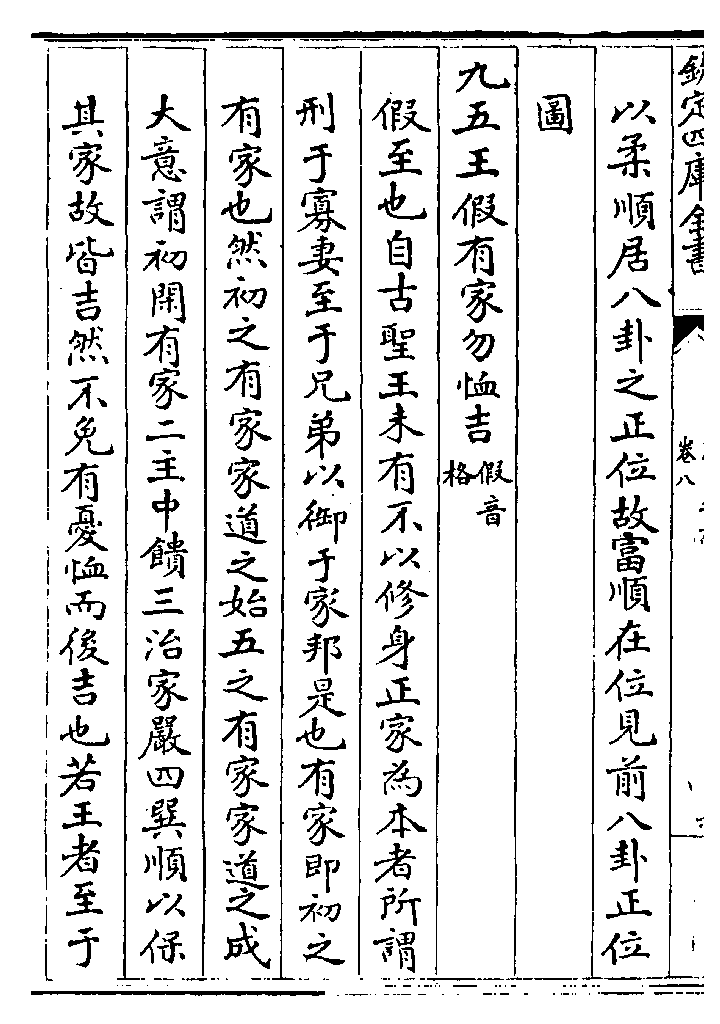 欽定四庫全書
卷八
以柔順居八卦之正位故富順在位見前八卦正位
圖
九五王假有家勿恤吉假音格
假至也自古聖王未有不以修身正家為本者所謂
刑于寡妻至于兄弟以御于家邦是也有家即初之
有家也然初之有家家道之始五之有家家道之成
大意謂初閑有家二主中饋三治家嚴四巽順以保
其家故皆吉然不免有憂恤而後吉也若王者至于